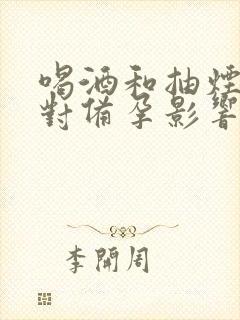 喝酒和抽煙
對備孕影響
李開周